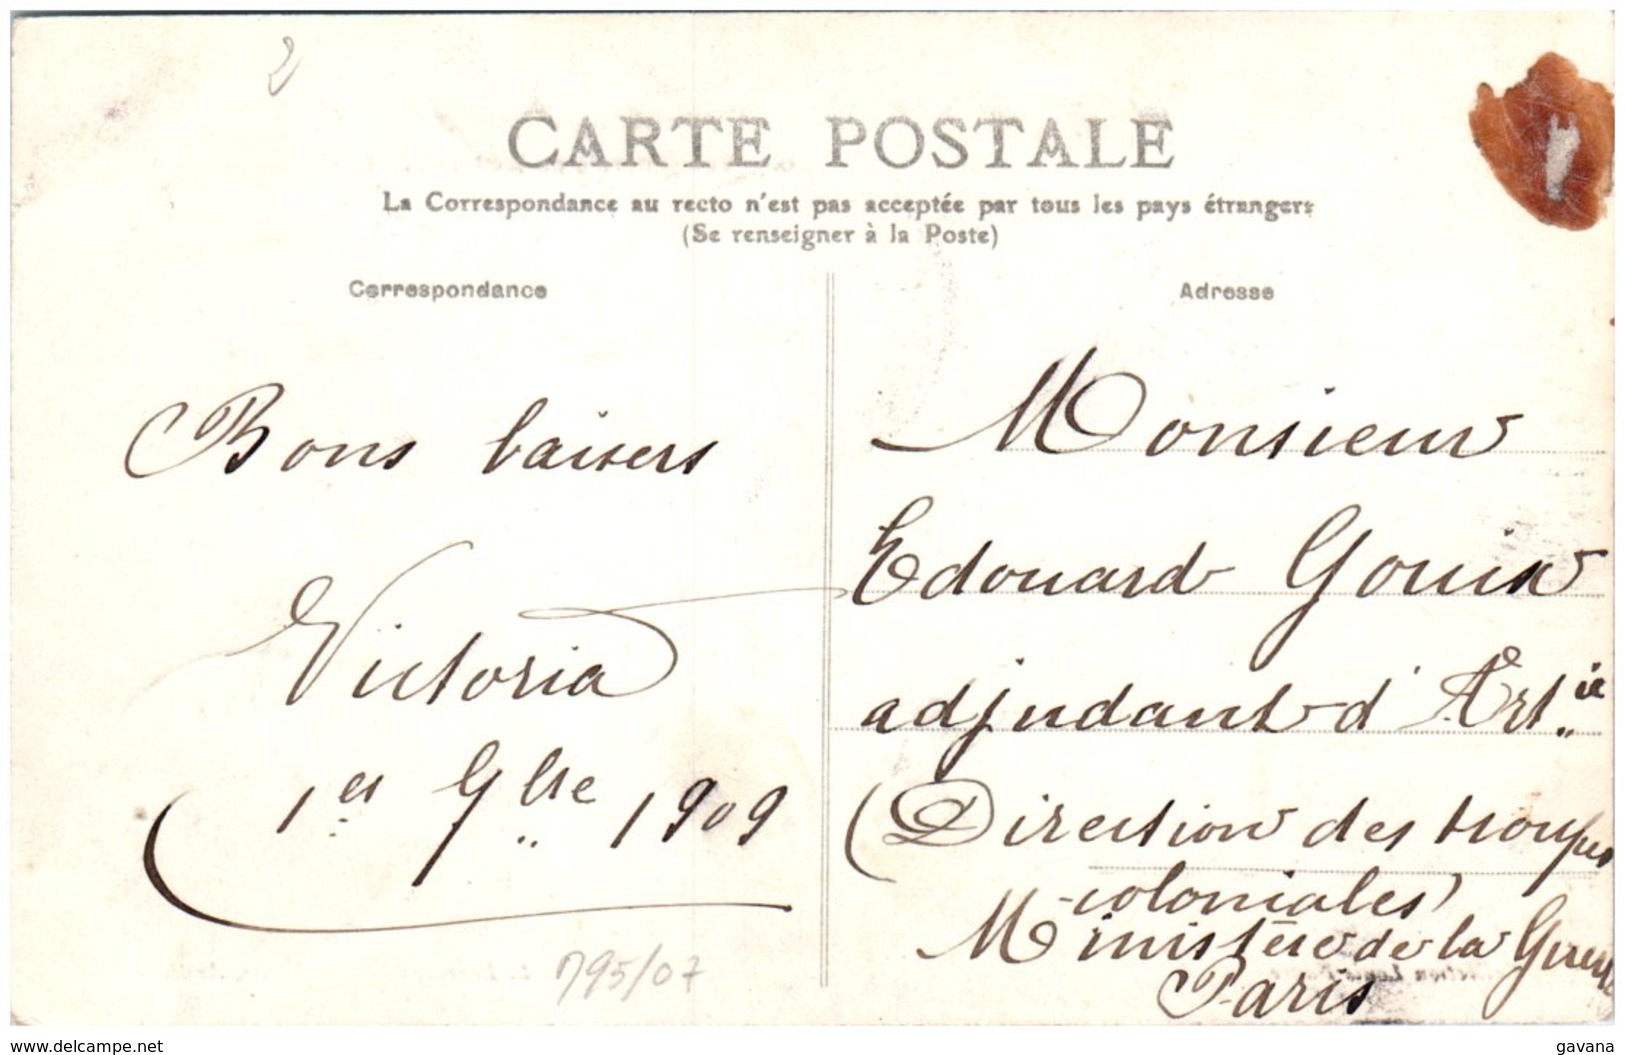 2
CARTE POSTALE
La Correspondance au recto n'est pas acceptée par tous les pays étrangers
(Se renseigner à la Poste)
Correspondance
Bons baisers
Victoria
1er 9bre 1909
795/07
Adresse
Monsieur
Edouard Gouin
adjudant d'Artie
(Direction des troupes
coloniales)
Ministère de la Guerre
Paris
www.delcampe.net
gavana